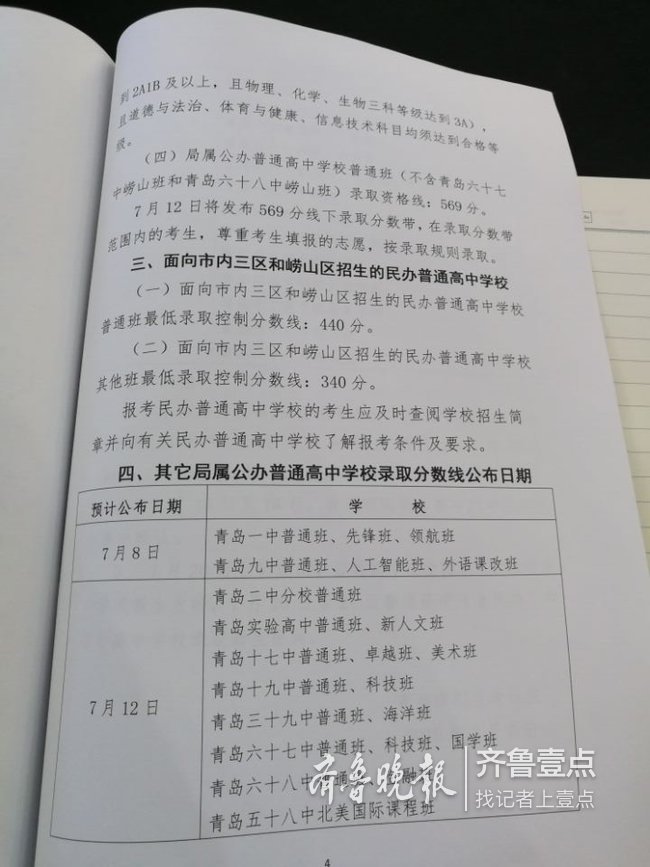 到2A1B及以上，且物理、化学、生物三科等级达到3A），
且道德与法治、体育与健康、信息技术科目均须达到合格等
级。
（四）局属公办普通高中学校普通班（不含青岛六十七
中崂山班和青岛六十八中崂山班）录取资格线：569分。
7月12日将发布569分线下录取分数带，在录取分数带
范围内的考生，尊重考生填报的志愿，按录取规则录取。
三、面向市内三区和崂山区招生的民办普通高中学校
（一）面向市内三区和崂山区招生的民办普通高中学校
普通班最低录取控制分数线：440分。
（二）面向市内三区和崂山区招生的民办普通高中学校
其他班最低录取控制分数线：340分。
报考民办普通高中学校的考生应及时查阅学校招生简
章并向有关民办普通高中学校了解报考条件及要求。
四、其它局属公办普通高中学校录取分数线公布日期
预计公布日期 学 校
7月8日
青岛一中普通班、先锋班、领航班
青岛九中普通班、人工智能班、外语课改班
7月12日
青岛二中分校普通班
青岛实验高中普通班、新人文班
青岛十七中普通班、卓越班、美术班
青岛十九中普通班、科技班
青岛三十九中普通班、海洋班
青岛六十七中普通班、科技班、国学班
青岛六十八中普通 融
青岛五十八中北美国际课程班
4
齐鲁晚报
齐鲁壹点
找记者上壹点